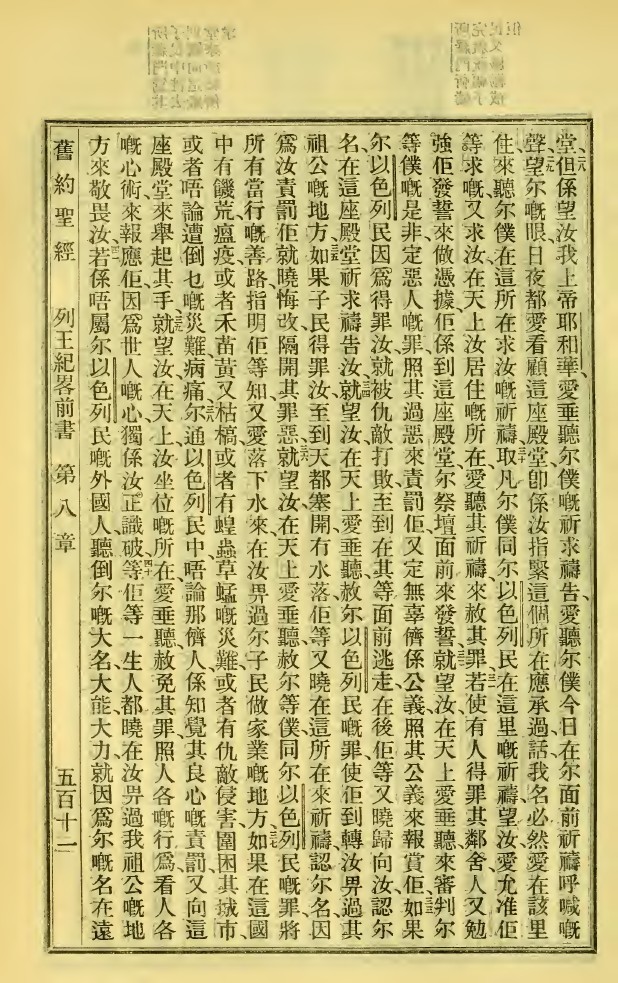 堂、但係望汝我上帝耶和華、愛垂聽尔僕嘅祈求禱告、愛聽尔僕今日在尔面前祈禱呼喊嘅
聲、望尔嘅眼、日夜都愛看顧這座殿堂、卽係汝指緊這個所在、應承過話、我名必然愛在該里
住、來聽尔僕在這所在求汝嘅祈禱、取凡尔僕同尔以色列民、在這里嘅祈禱、望汝愛允准佢
等求嘅、又求汝在天上汝居住嘅所在、愛聽其祈禱、來赦其罪、若使有人得罪其鄰舍、人又勉
強佢發誓來做憑據、佢係到這座殿堂、尔祭壇面前來發誓、就望汝在天上愛垂聽來審判尔
等僕嘅是非、定惡人嘅罪、照其過惡來責罰佢、又定無辜儕係公義、照其公義來報賞佢、如果
尔以色列民、因爲得罪汝、就被仇敵打敗、至到在其等面前逃走、在後佢等又曉歸向汝、認尔
名、在這座殿堂祈求禱告汝、就望汝在天上愛垂聽、赦尔以色列民嘅罪、使佢到轉汝畀過其
祖公嘅地方、如果子民得罪汝、至到天都塞開冇水落、佢等又曉在這所在來祈禱、認尔名、因
爲汝責罰佢、就曉悔改、隔開其罪惡、就望汝在天上愛垂聽、赦尔等僕同尔以色列民嘅罪、將
所有當行嘅善路、指明佢等知、又愛落下水來、在汝畀過尔子民做家業嘅地方、如果在這國
中、有饑荒瘟疫、或者禾苗黃又枯槁、或者有蝗蟲草蜢嘅災難、或者有仇敵侵害圍困其城市、
或者唔論遭倒乜嘅災難病痛、尔通以色列民中、唔論那儕人、係知覺其良心嘅責罰、又向這
座殿堂來舉起其手、就望汝在天上汝坐位嘅所在、愛垂聽、赦免其罪、照人各嘅行爲、看人各
嘅心術來報應佢、因爲世人嘅心、獨係汝正識破、等佢等一生人都曉在汝畀過我祖公嘅地
方來敬畏汝、若係唔屬尔以色列民嘅外國人、聽倒尔嘅大名、大能、大力、就因爲尔嘅名、在遠
舊約聖經 列王紀畧前書 第八章 五百十二